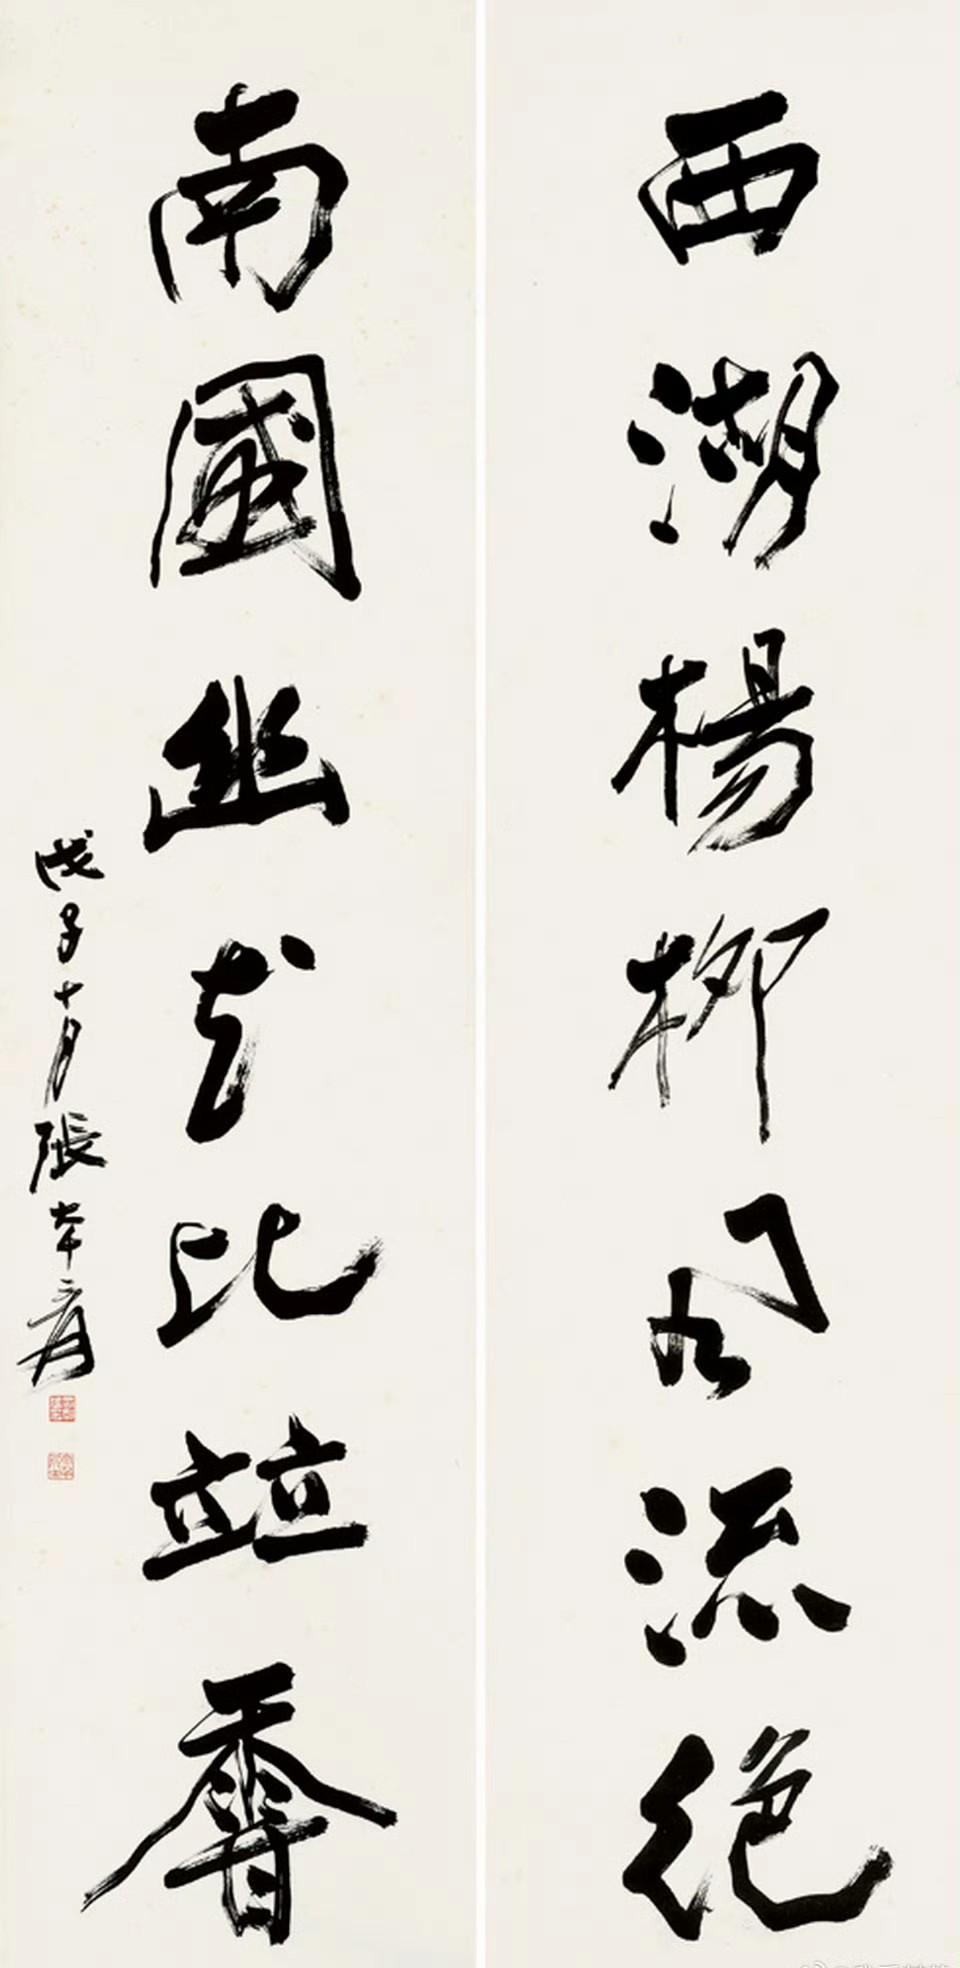 西湖楊柳風流絕
南國幽花比並香
戊子十月張大千爰